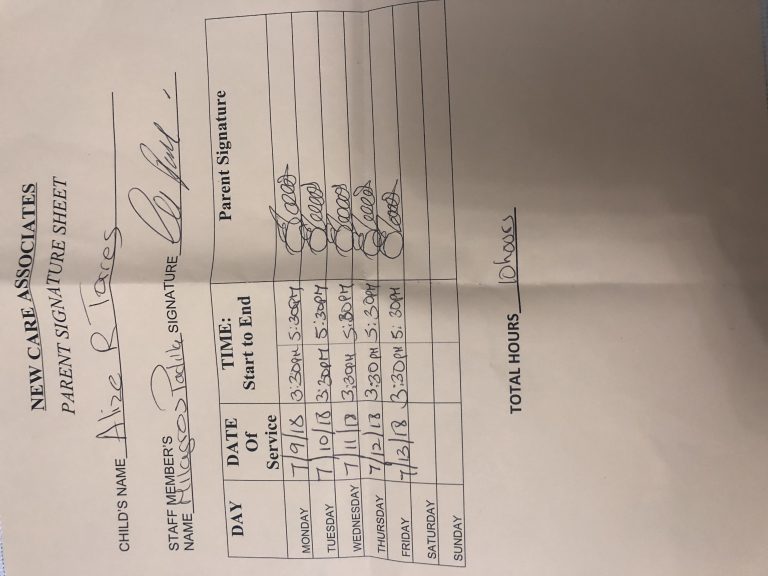 NEW CARE ASSOCIATES
PARENT SIGNATURE SHEET
CHILD'S NAME Alize R Torres
STAFF MEMBER'S
NAME Milagros Padilla SIGNATURE
DAY DATE Of Service TIME: Start to End Parent Signature
MONDAY 7/9/18 3:30PM 5:30PM
TUESDAY 7/10/18 3:30PM 5:30PM
WEDNESDAY 7/11/18 3:30PM 5:30PM
THURSDAY 7/12/18 3:30PM 5:30PM
FRIDAY 7/13/18 3:30PM 5:30PM
SATURDAY
SUNDAY
TOTAL HOURS 10 hours